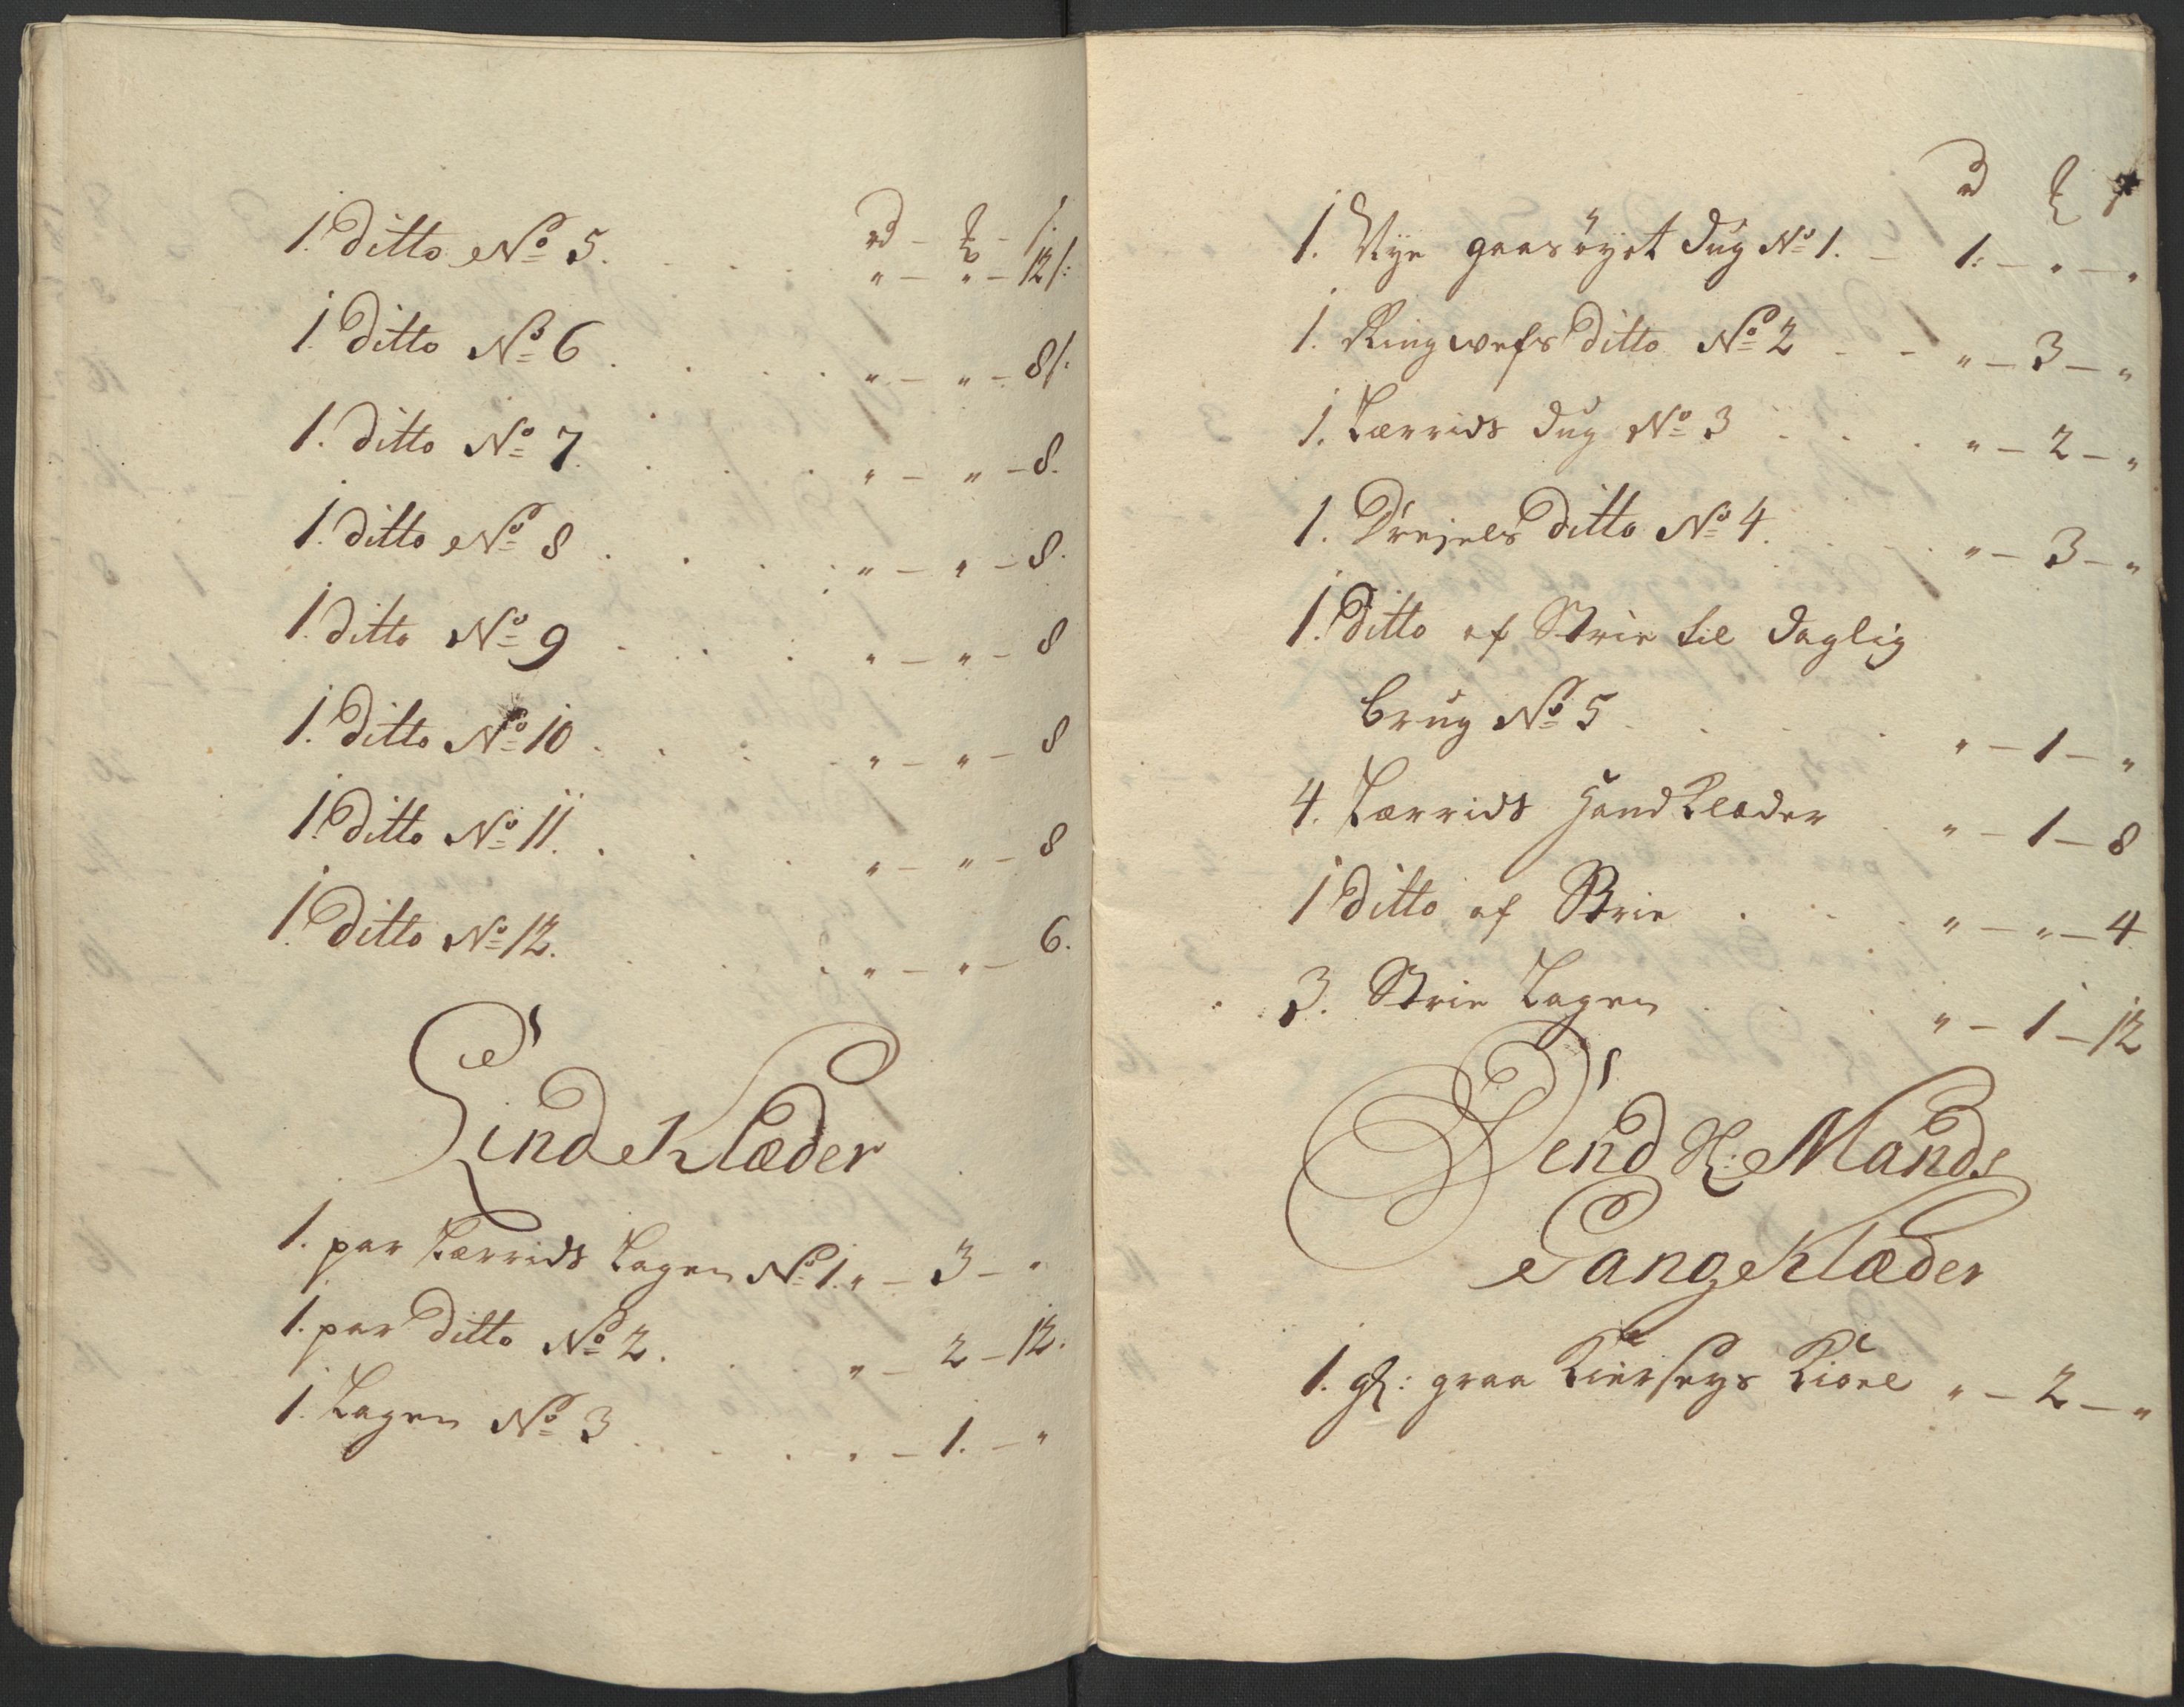 rd - ℔ - s
1. Ditto No 5. . . . " - " - 12 s:
1. Ditto No 6 . . . . " - " - 8 s.
1. Ditto No 7. . . . " - " - 8.
1. Ditto No 8 . . . . " - " - 8.
1. Ditto No 9 . . . " - " - 8
1. Ditto No 10 . . . " - " - 8
1. Ditto No 11. . . . " - " - 8
1. Ditto No 12. . . . " - " - 6.
Lind Klæder
1. par Lærrids Lagen No 1. " - 3 - "
1. par Ditto No 2. . . " - 2 - 12.
1. Lagen No 3 . . . . " - 1. - "
rd ℔ s
1. Nye gaasøyet Dug No 1. - 1: - " - "
1. Ringwefs Ditto No 2 - - " - 3 - "
1. Lærrids Dug No 3 . . . " - 2 - "
1. Drejels Ditto No 4. . . " - 3 - "
1. Ditto af Strie til Daglig
brug No 5 . . . . " - 1 - "
4. Lærrids Haandklæder . " - 1 - 8
1 Ditto af Strie . . . " - " - 4
3. Strie Lagen . . . " - 1 - 12
Dend Sl: Mands
Gang Klæder
1. gl: graa Kierseys Kioel " - 2 - "